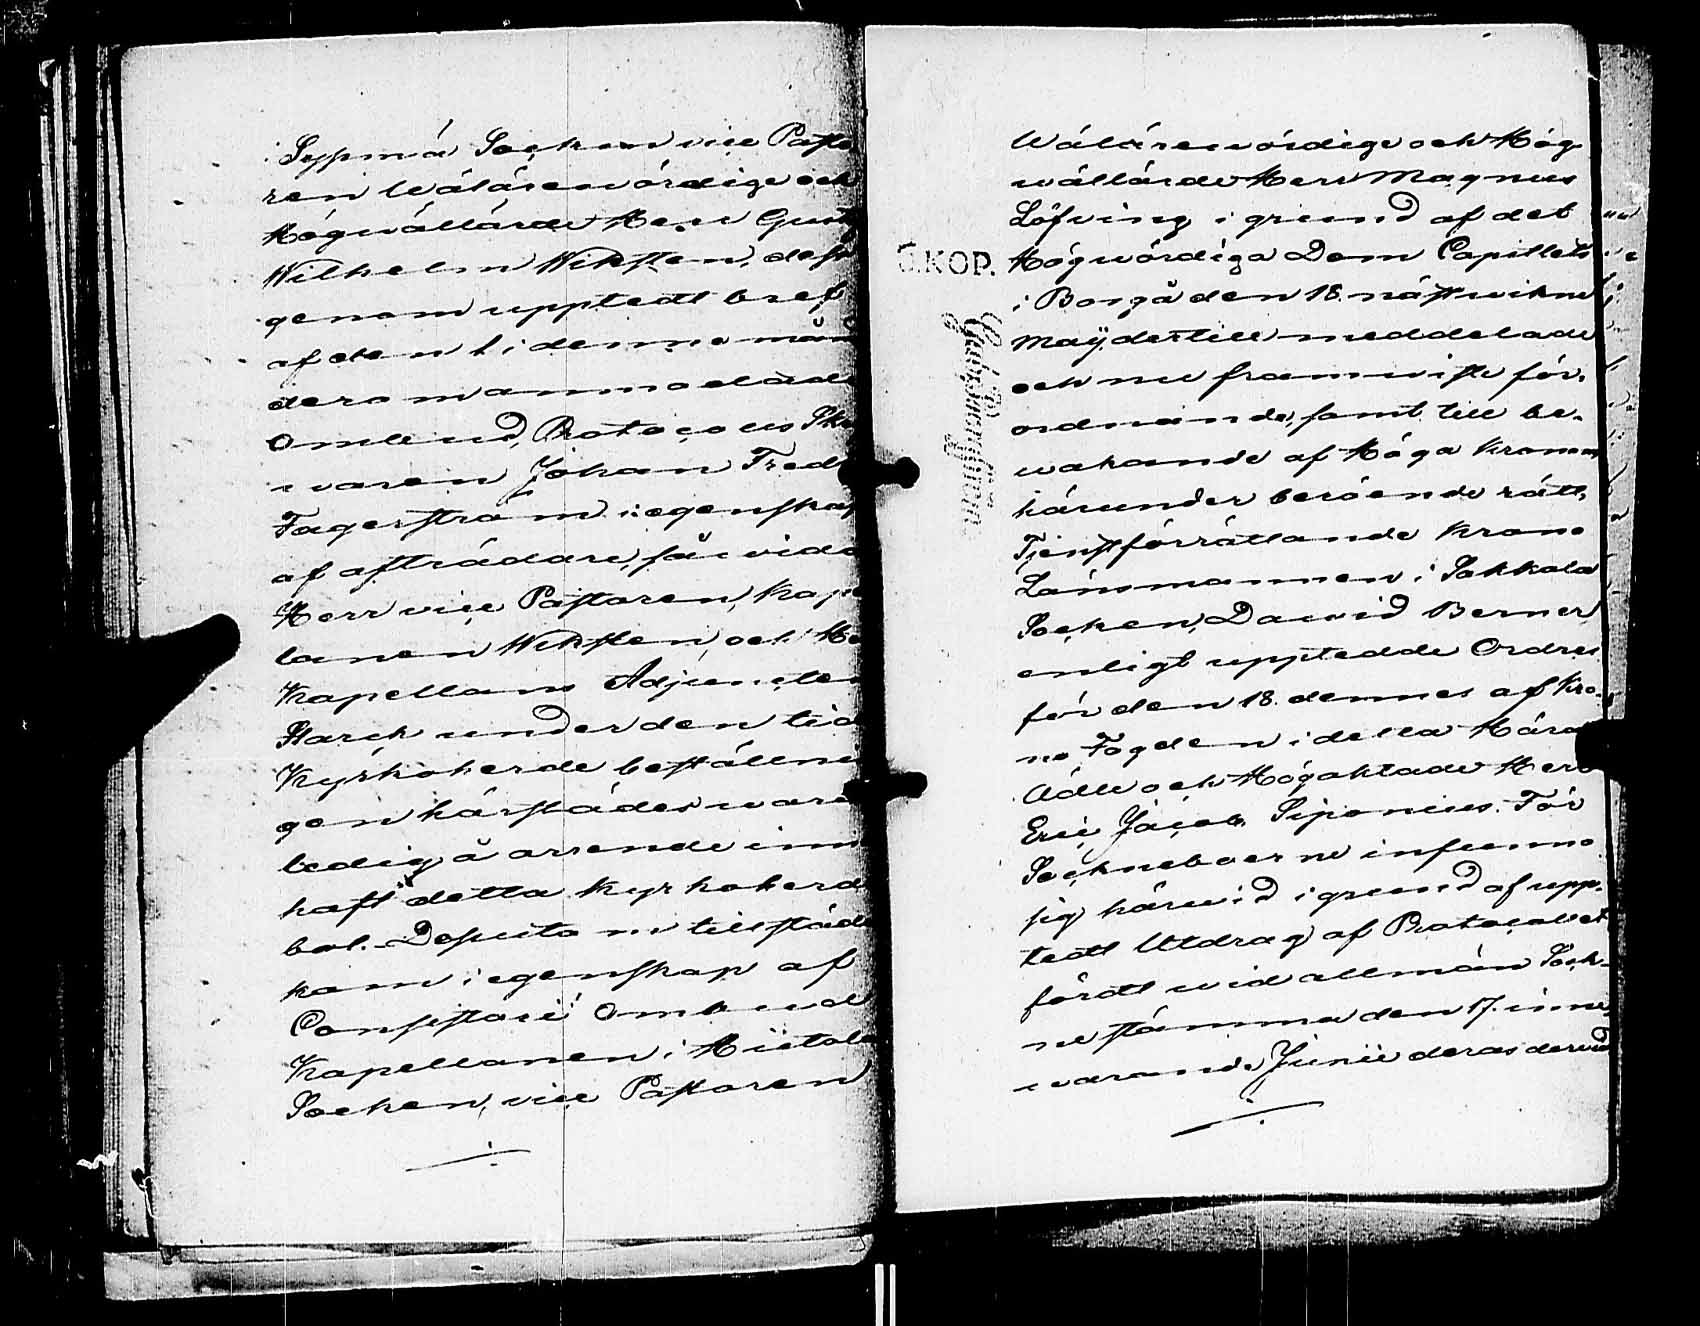 Seppmä Socken vice Pasto
ren Wälärewördige och
Högwällärde Herr Gust
Wilhelm Wiksten, dess
genom upptedt bref
af den 1. i denne mån
dero anmodad
Ombud, Protocols Skr
waren Johan Fred
Fagerström i egenskap
af afträdare, så wida
Herr vice Pastoren, Kape
lanen Wiksten, och He
Kapellans Adjuncten
Starck under den tid
Kyrkoherde beställnin
gen härstädes warit
ledig, å arrende inne
haft detta Kyrkoherd
bol. Dessuto m tillstäd
kom i egenskap af
Consistorii Ombud
Kapellanen i Hiitola
Socken, vice Pastoren
Wälärewördige och Hög
wällärde Herr Magnus
Löfving i grund af det
Högwördiga Dom Capitlets
i Borgå den 18. nästwikne
Maÿ dertill meddelade
och nu framwiste för-
ordnande, samt till be-
wakande af Höga Kronans
härunder beroende rätt,
Tjenstförrättande Krono
Länsmannen i Sakkola
Socken, David Berner
enligt upptedde Ordres
för den 18. dennes af Kro-
no Fogden i detta Härad
Ädle och Högaktade Herr
Eric Jacob Siponius. För
Socknebоerne infunno
sig härwid i grund af upp-
tedt Utdrag af Protocollet
fördt wid allmän Sock-
ne stämma den 17. inne
warande Junii deras derwid
Ö.KOP.